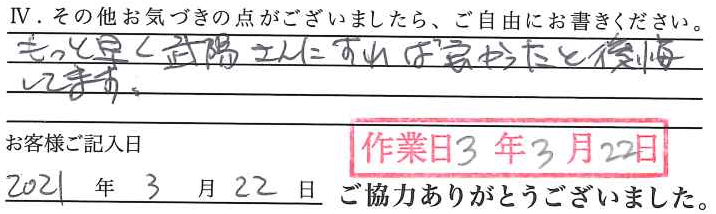 Ⅳ．その他お気づきの点がございましたら、ご自由にお書きください。
もっと早く武陽さんにすれば良かったと後悔
してます。
お客様ご記入日
作業日3年3月22日
2021年3月22日
ご協力ありがとうございました。